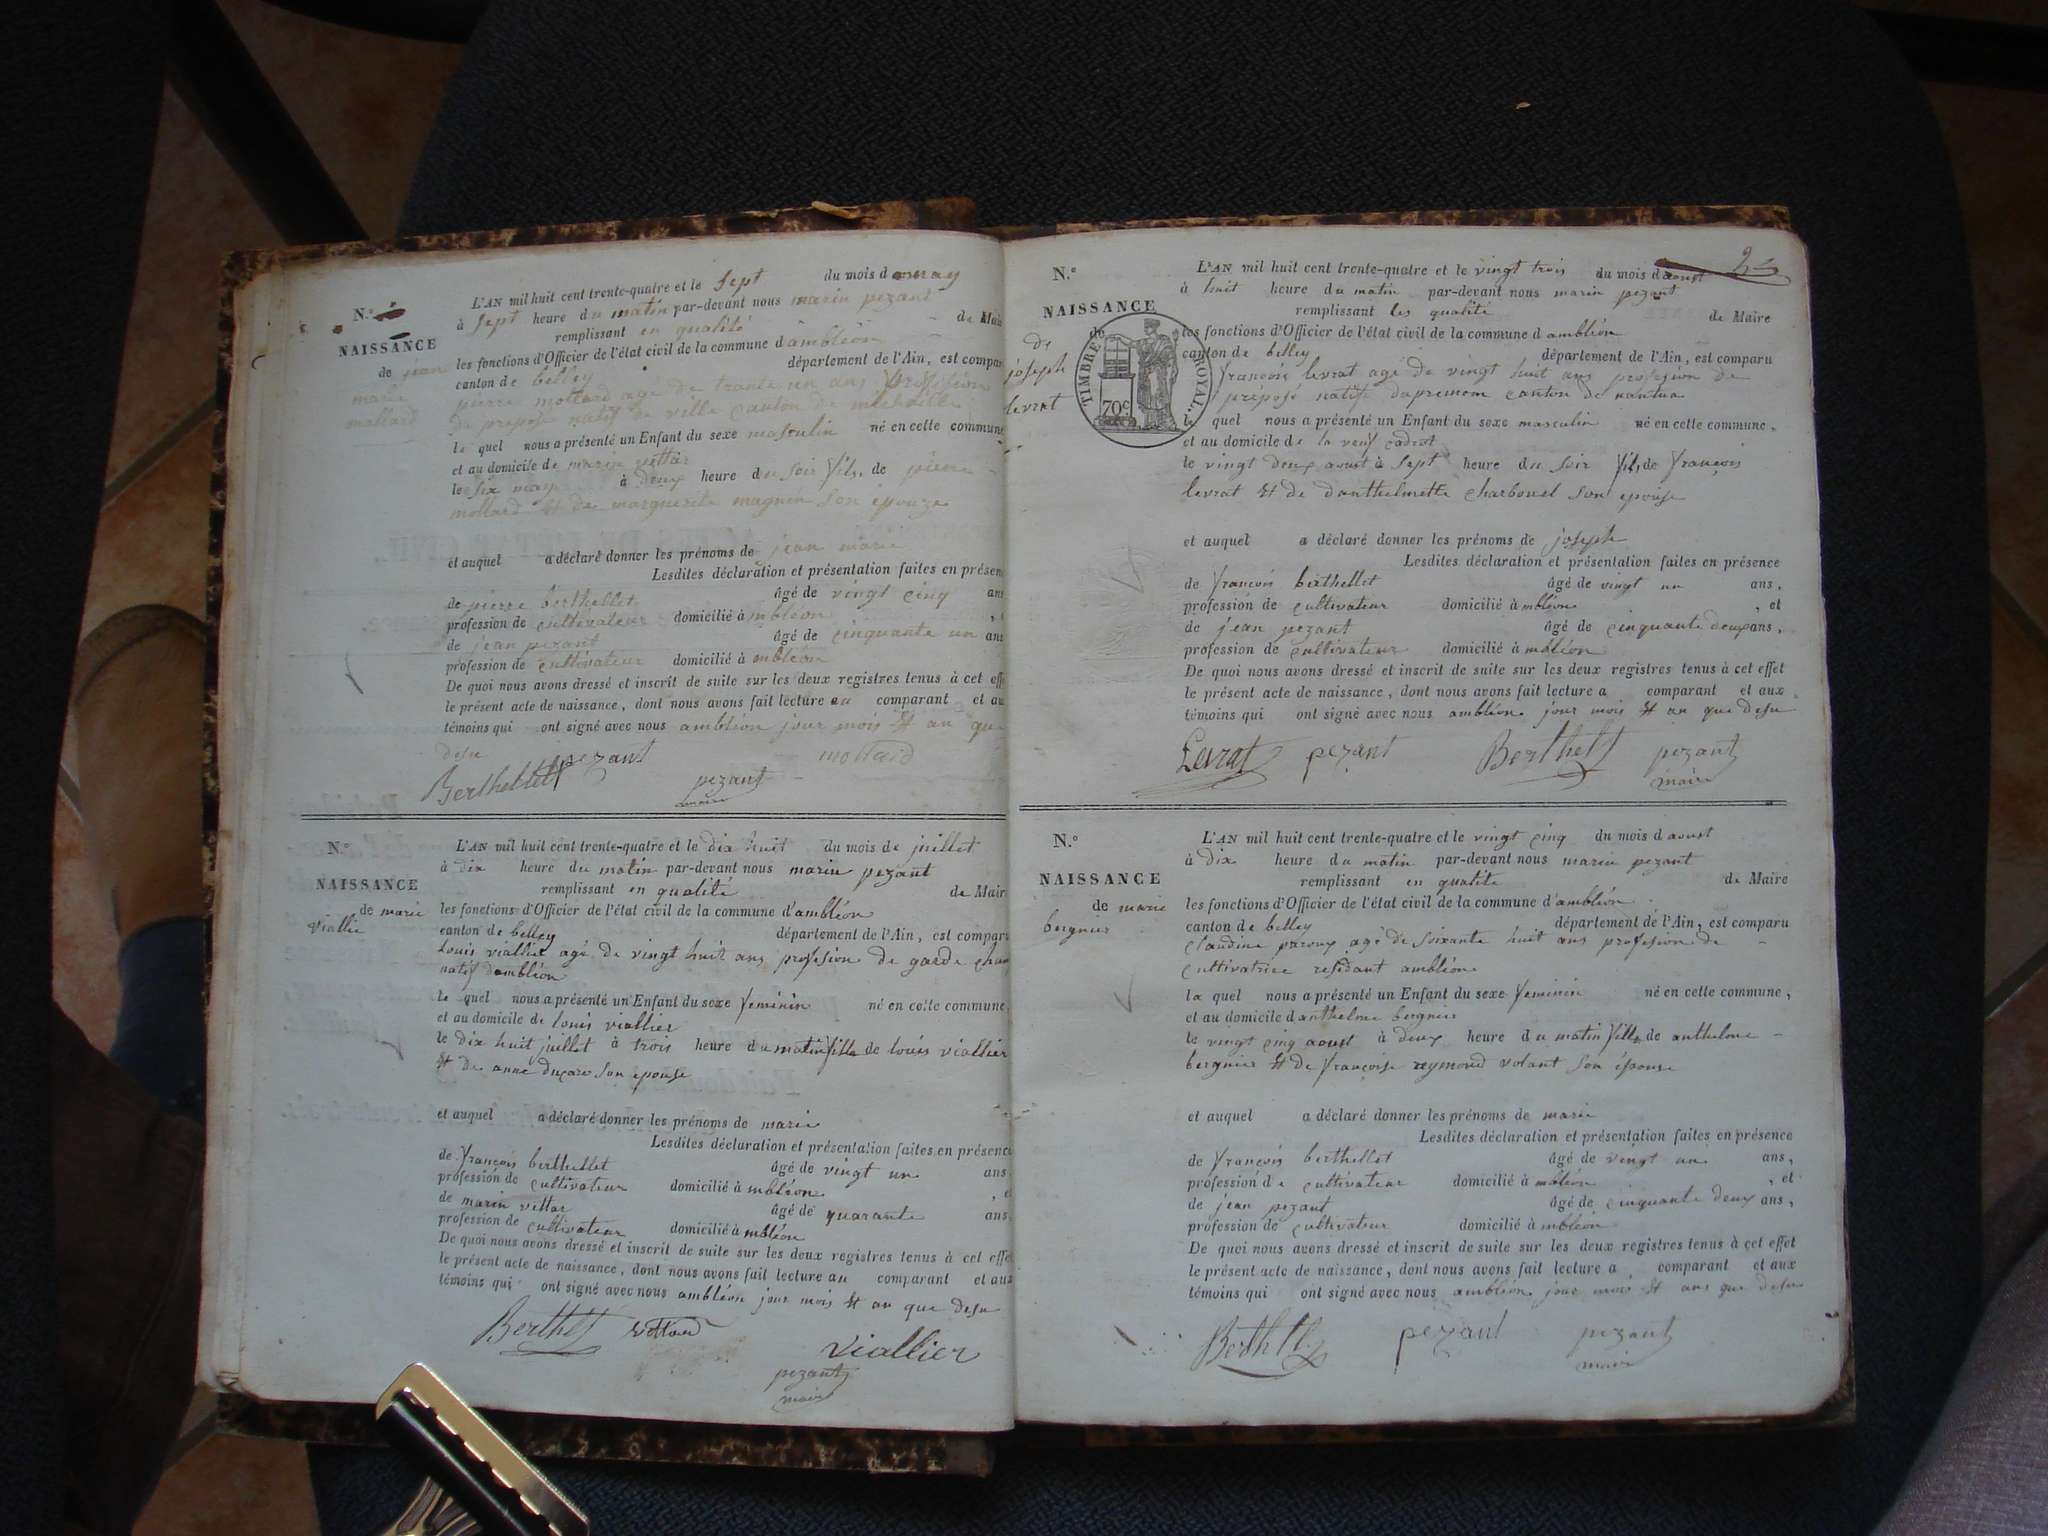 N.º 1
NAISSANCE
de jean
marie
mollard
L'AN mil huit cent trente-quatre et le sept du mois de may
à sept heure du matin par-devant nous marin pezant
remplissant en qualité de Mair
les fonctions d'Officier de l'état civil de la commune d'ambléon
canton de belley département de l'Ain, est compar
pierre mollard agé de trante un ans profession
de preposé natif de ville canton de
le quel nous a présenté un Enfant du sexe masculin né en cette commune
et au domicile de marin vettar
le six may à deux heure du soir fils de pierre
mollard et de marguerite magnin son épouze
et auquel a déclaré donner les prénoms de jean marie
Lesdites déclaration et présentation faites en présen
de pierre berthellet âgé de vingt cinq ans
profession de cultivateur domicilié à mbléon
de jean pezant âgé de cinquante un ans
profession de cultivateur domicilié à mbléon
De quoi nous avons dressé et inscrit de suite sur les deux registres tenus à cet eff
le présent acte de naissance, dont nous avons fait lecture au comparant et au
témoins qui ont signé avec nous ambléon jour mois et an que
desu
Berthellet pezant pezant mollard
maire
N.º
NAISSANCE
de marie
viallier
L'AN mil huit cent trente-quatre et le dix huit du mois de juillet
à dix heure du matin par-devant nous marin pezant
remplissant en qualité de Mair
les fonctions d'Officier de l'état civil de la commune d'ambléon
canton de belley département de l'Ain, est compar
Louis viallier agé de vingt huit ans profesion de garde cham
natif dambléon
le quel nous a présenté un Enfant du sexe feminin né en cette commune,
et au domicile de louis viallier
le dix huit juillet à trois heure du matin fille de louis viallier
et de anne ducare son epouse
et auquel a déclaré donner les prénoms de marie
Lesdites déclaration et présentation faites en présenc
de françois berthellet âgé de vingt un ans,
profession de cultivateur domicilié à mbléon , e
de marin vettar âgé de quarante ans,
profession de cultivateur domicilié à mbléon
De quoi nous avons dressé et inscrit de suite sur les deux registres tenus à cet effe
le présent acte de naissance, dont nous avons fait lecture au comparant et aux
témoins qui ont signé avec nous ambléon jour mois et an que desu
Berthet vettard viallier
pezant
maire
2
N.º
NAISSANCE
de
de
joseph
levrat
TIMBRE ROYAL.
70c
L'AN mil huit cent trente-quatre et le vingt trois du mois d aoust
à huit heure du matin par-devant nous marin pezant
remplissant les qualité de Maire
les fonctions d'Officier de l'état civil de la commune d ambléon
canton de belley département de l'Ain, est comparu
françois levrat agé de vingt huit ans profesion de
préposé natif canton de nantua
le quel nous a présenté un Enfant du sexe masculin né en cette commune,
et au domicile de la veuf cadrot
le vingt deux aoust à sept heure du soir fils de françois
levrat et de danthelmette charbonel son epouse
et auquel a déclaré donner les prénoms de joseph
Lesdites déclaration et présentation faites en présence
de françois berthellet âgé de vingt un ans,
profession de cultivateur domicilié à mbléon , et
de jean pezant âgé de cinquante deux ans,
profession de cultivateur domicilié à mbléon
De quoi nous avons dressé et inscrit de suite sur les deux registres tenus à cet effet
le présent acte de naissance, dont nous avons fait lecture a comparant et aux
témoins qui ont signé avec nous ambléon jour mois et an que desu
Levrat pezant Berthet pezant
maire
N.º
NAISSANCE
de marie
bergnier
L'AN mil huit cent trente-quatre et le vingt cinq du mois d aoust
à dix heure du matin par-devant nous marin pezant
remplissant en qualité de Maire
les fonctions d'Officier de l'état civil de la commune d'ambléon
canton de belley département de l'Ain, est comparu
claudine paroux agé de soixante huit ans profesion de
cultivatrice residant ambléon
la quel nous a présenté un Enfant du sexe feminin né en cette commune,
et au domicile d anthelme bergnier
le vingt cinq aoust à deux heure du matin fille de anthelme
bergnier et de françoise reymond volant son épouse
et auquel a déclaré donner les prénoms de marie
Lesdites déclaration et présentation faites en présence
de françois berthellet âgé de vingt un ans,
profession de cultivateur domicilié à mbléon , et
de jean pezant âgé de cinquante deux ans,
profession de cultivateur domicilié à mbléon
De quoi nous avons dressé et inscrit de suite sur les deux registres tenus à cet effet
le présent acte de naissance, dont nous avons fait lecture a comparant et aux
témoins qui ont signé avec nous ambléon jour mois et ans que desu
Berthet pezant pezant
maire